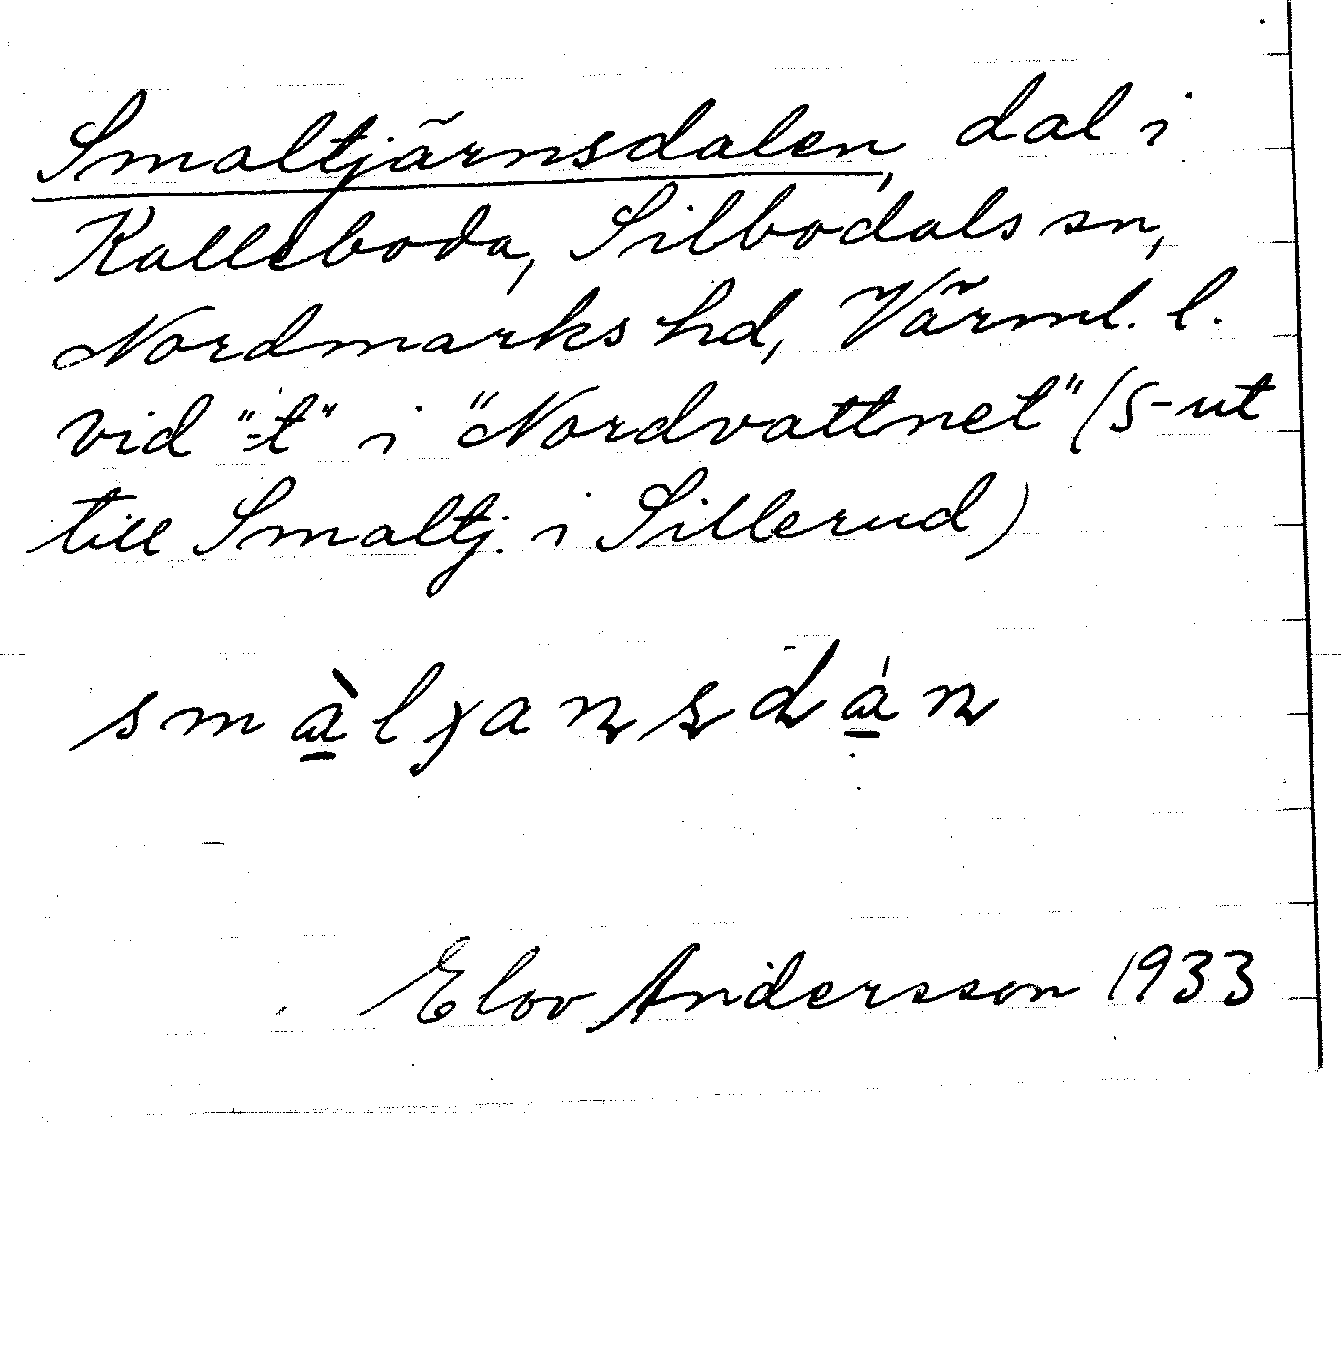 Smaltjärnsdalen, dal i
Kalleboda, Silbodals sn,
Nordmarks hd, Värml. l.
vid "-t" i "Nordvattnet" (S-ut
till Smaltj. i Sillerud)
Elov Andersson 1933